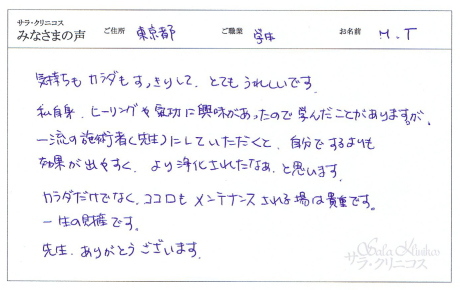 サラ・クリニコス
みなさまの声 ご住所 東京都 ご職業 学生 お名前 M.T
気持ちも カラダも すっきりして、とても うれしいです。
私自身、ヒーリングや氣功に興味があったので学んだことがありますが、
一流の施術者(先生)にしていただくと、自分でするよりも
効果が出やすく、より浄化されたなぁ、と思います。
カラダだけでなく、ココロも メンテナンスされる場は貴重です。
一生の財産です。
先生、ありがとうございます。
Sala Klinikos
サラ・クリニコス